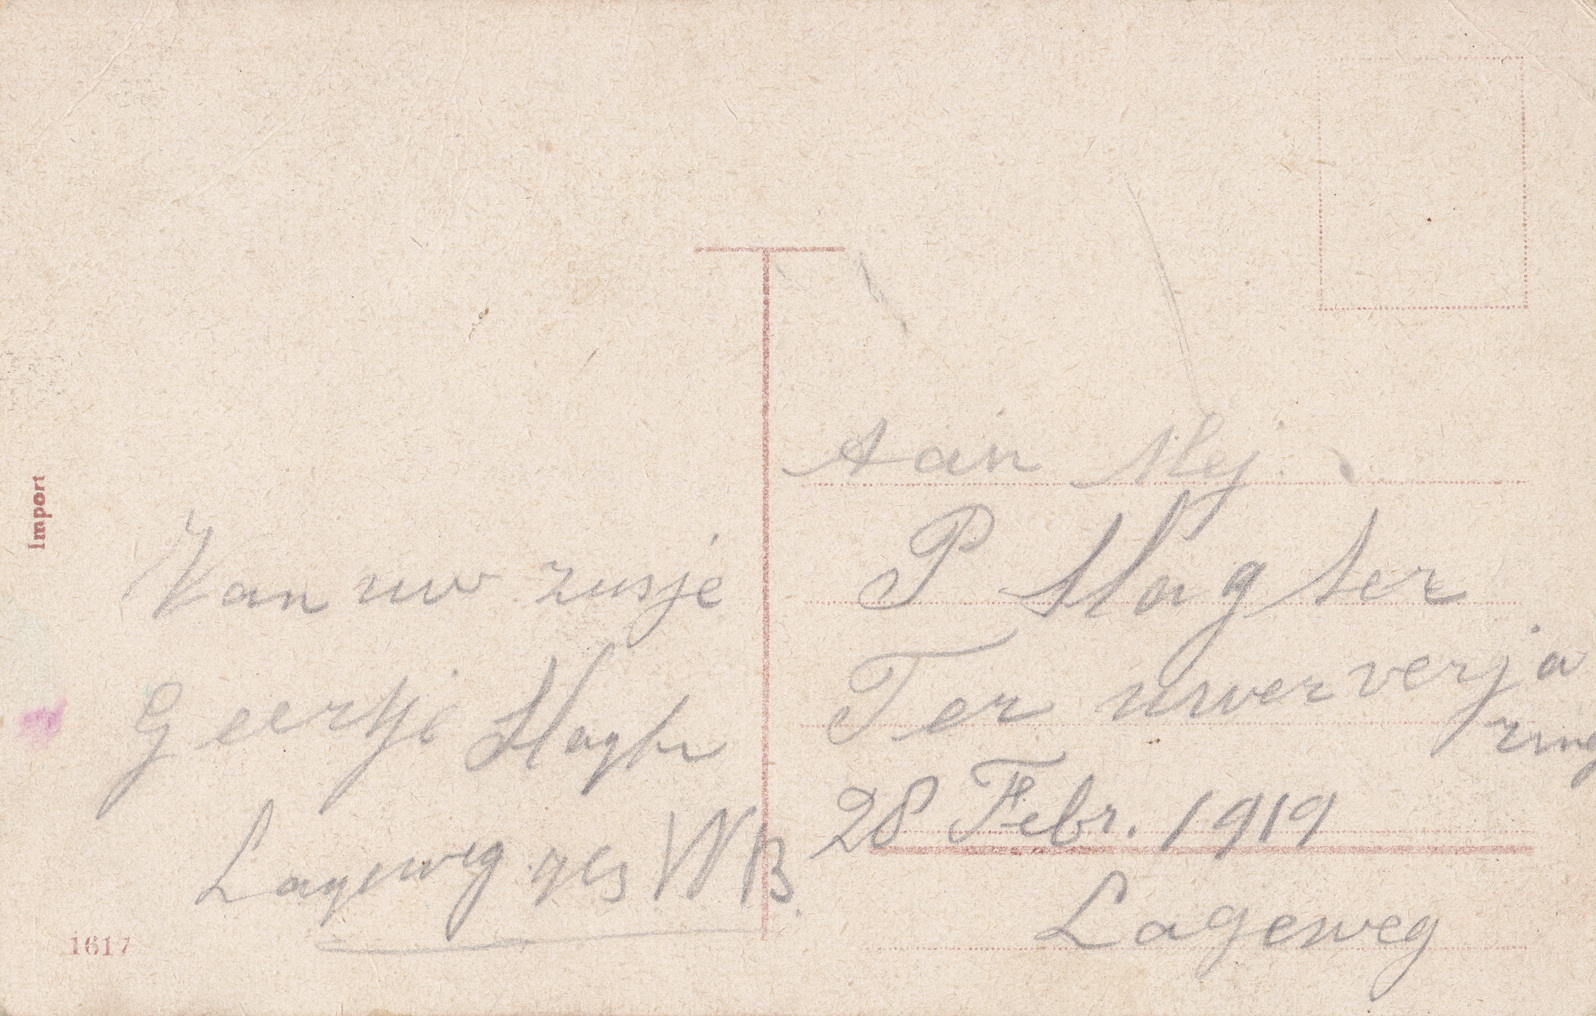 Import
Van uw zusje
Geertje Slagter
Lageweg
WB.
1617
Aan Mej.
P Slagter
Ter uwer verja
ring
28 Febr. 1919
Lageweg